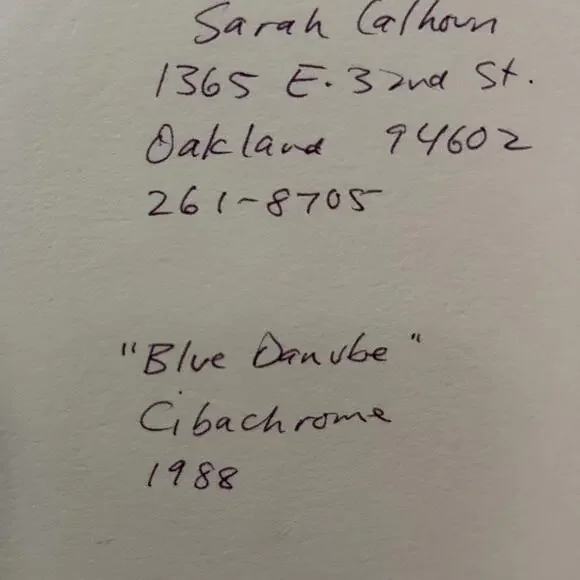 Sarah Calhoun
1365 E. 32nd St.
Oakland 94602
261-8705
"Blue Danube"
Cibachrome
1988